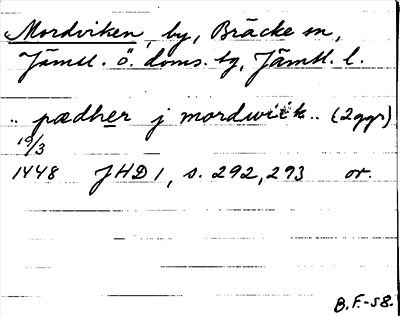 Mordviken, by, Bräcke sn,
Jämtl. ö. doms. tg, Jämtl. l.
.. pædher j mordwiik .. (2 ggr)
19/3
1448 JHD 1, s. 292, 293 or.
B.F.-58.